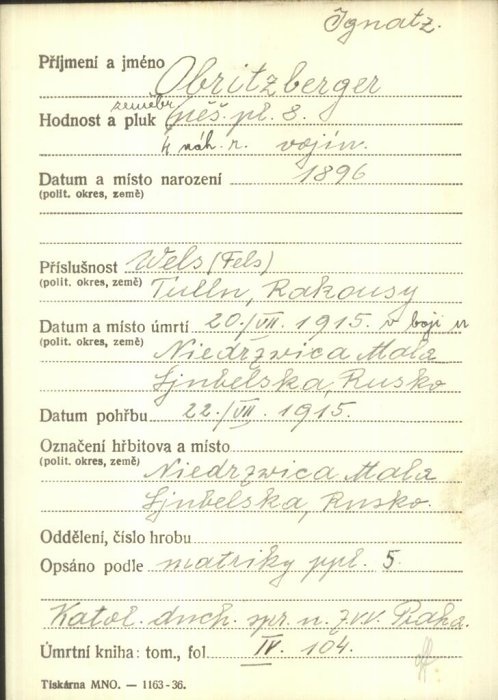 Ignatz.
Příjmení a jméno Obritzberger
zeměbr.
Hodnost a pluk pěš. pl. 8.
4 náh. r. vojín.
Datum a místo narození 1896
(polit. okres, země)
Příslušnost Wels (Fels)
(polit. okres, země) Tulln, Rakousy
Datum a místo úmrtí 20./VII. 1915. v boji u
(polit. okres, země) Niedrzwica Mala
Ljubelska, Rusko
Datum pohřbu 22./VII. 1915.
Označení hřbitova a místo
(polit. okres, země) Niedrzwica Mala
Ljubelska, Rusko.
Oddělení, číslo hrobu
Opsáno podle matriky ppl. 5.
Katol. duch. spr. u. zvv. Praha.
Úmrtní kniha: tom., fol. IV. 104.
Tiskárna MNO. — 1163-36.